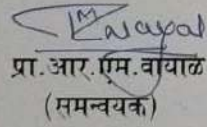 प्रा. आर. एम. वायाळ
(समन्वयक)